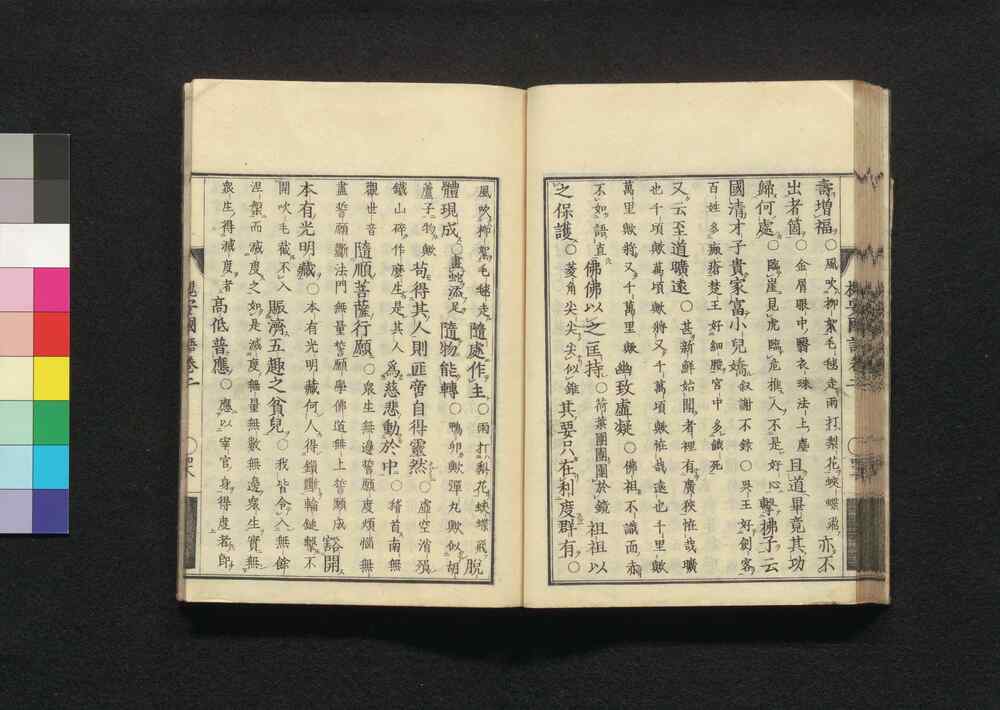 壽増福。○風吹柳絮毛毬走雨打梨花蛺蝶飛亦不
出者箇。○金屑眼中翳衣珠法上塵且道畢竟其功
歸何處。○臨崖見虎臨危推人不是好心擊拂子云
國清才子貴家富小兒嬌叙謝不錄○吳王好劍客
百姓多瘢瘡楚王好細腰宮中多餓死
又云至道曠遠。○甚新鮮始聞者裡有廣狹怪哉曠
也千頃歟萬頃歟將又千萬頃歟怪哉遠也千里歟
萬里歟將又千萬里歟幽致虛凝○佛祖不識面赤
不如語直佛佛以之匡持。○荷葉團團團於鏡祖祖以
之保護。○菱角尖尖尖似錐其要只在利度群有。○
風吹柳絮毛毬走隨處作主。○雨打梨花蛺蝶飛脫
體現成。○畫蛇添足隨物能轉○鴨卵歟彈丸歟似胡
蘆子物歟苟得其人則匪啻自得靈然。○虛空消殞
鐵山碎作麼生是其人為慈悲動於中。○稽首南無
觀世音隨順菩薩行願。○衆生無邊誓願度煩惱無
盡誓願斷法門無量誓願學佛道無上誓願成豁開
本有光明藏。○本有光明藏何人得鎖輪鏈擊不
開吹毛截不入賑濟五趣之貧兒。○我皆令入無餘
涅槃而滅度之如是滅度無量無數無邊衆生實無
衆生得滅度者高低普應。○應以宰官身得度者即
槐安國語卷二
槐安國語卷二